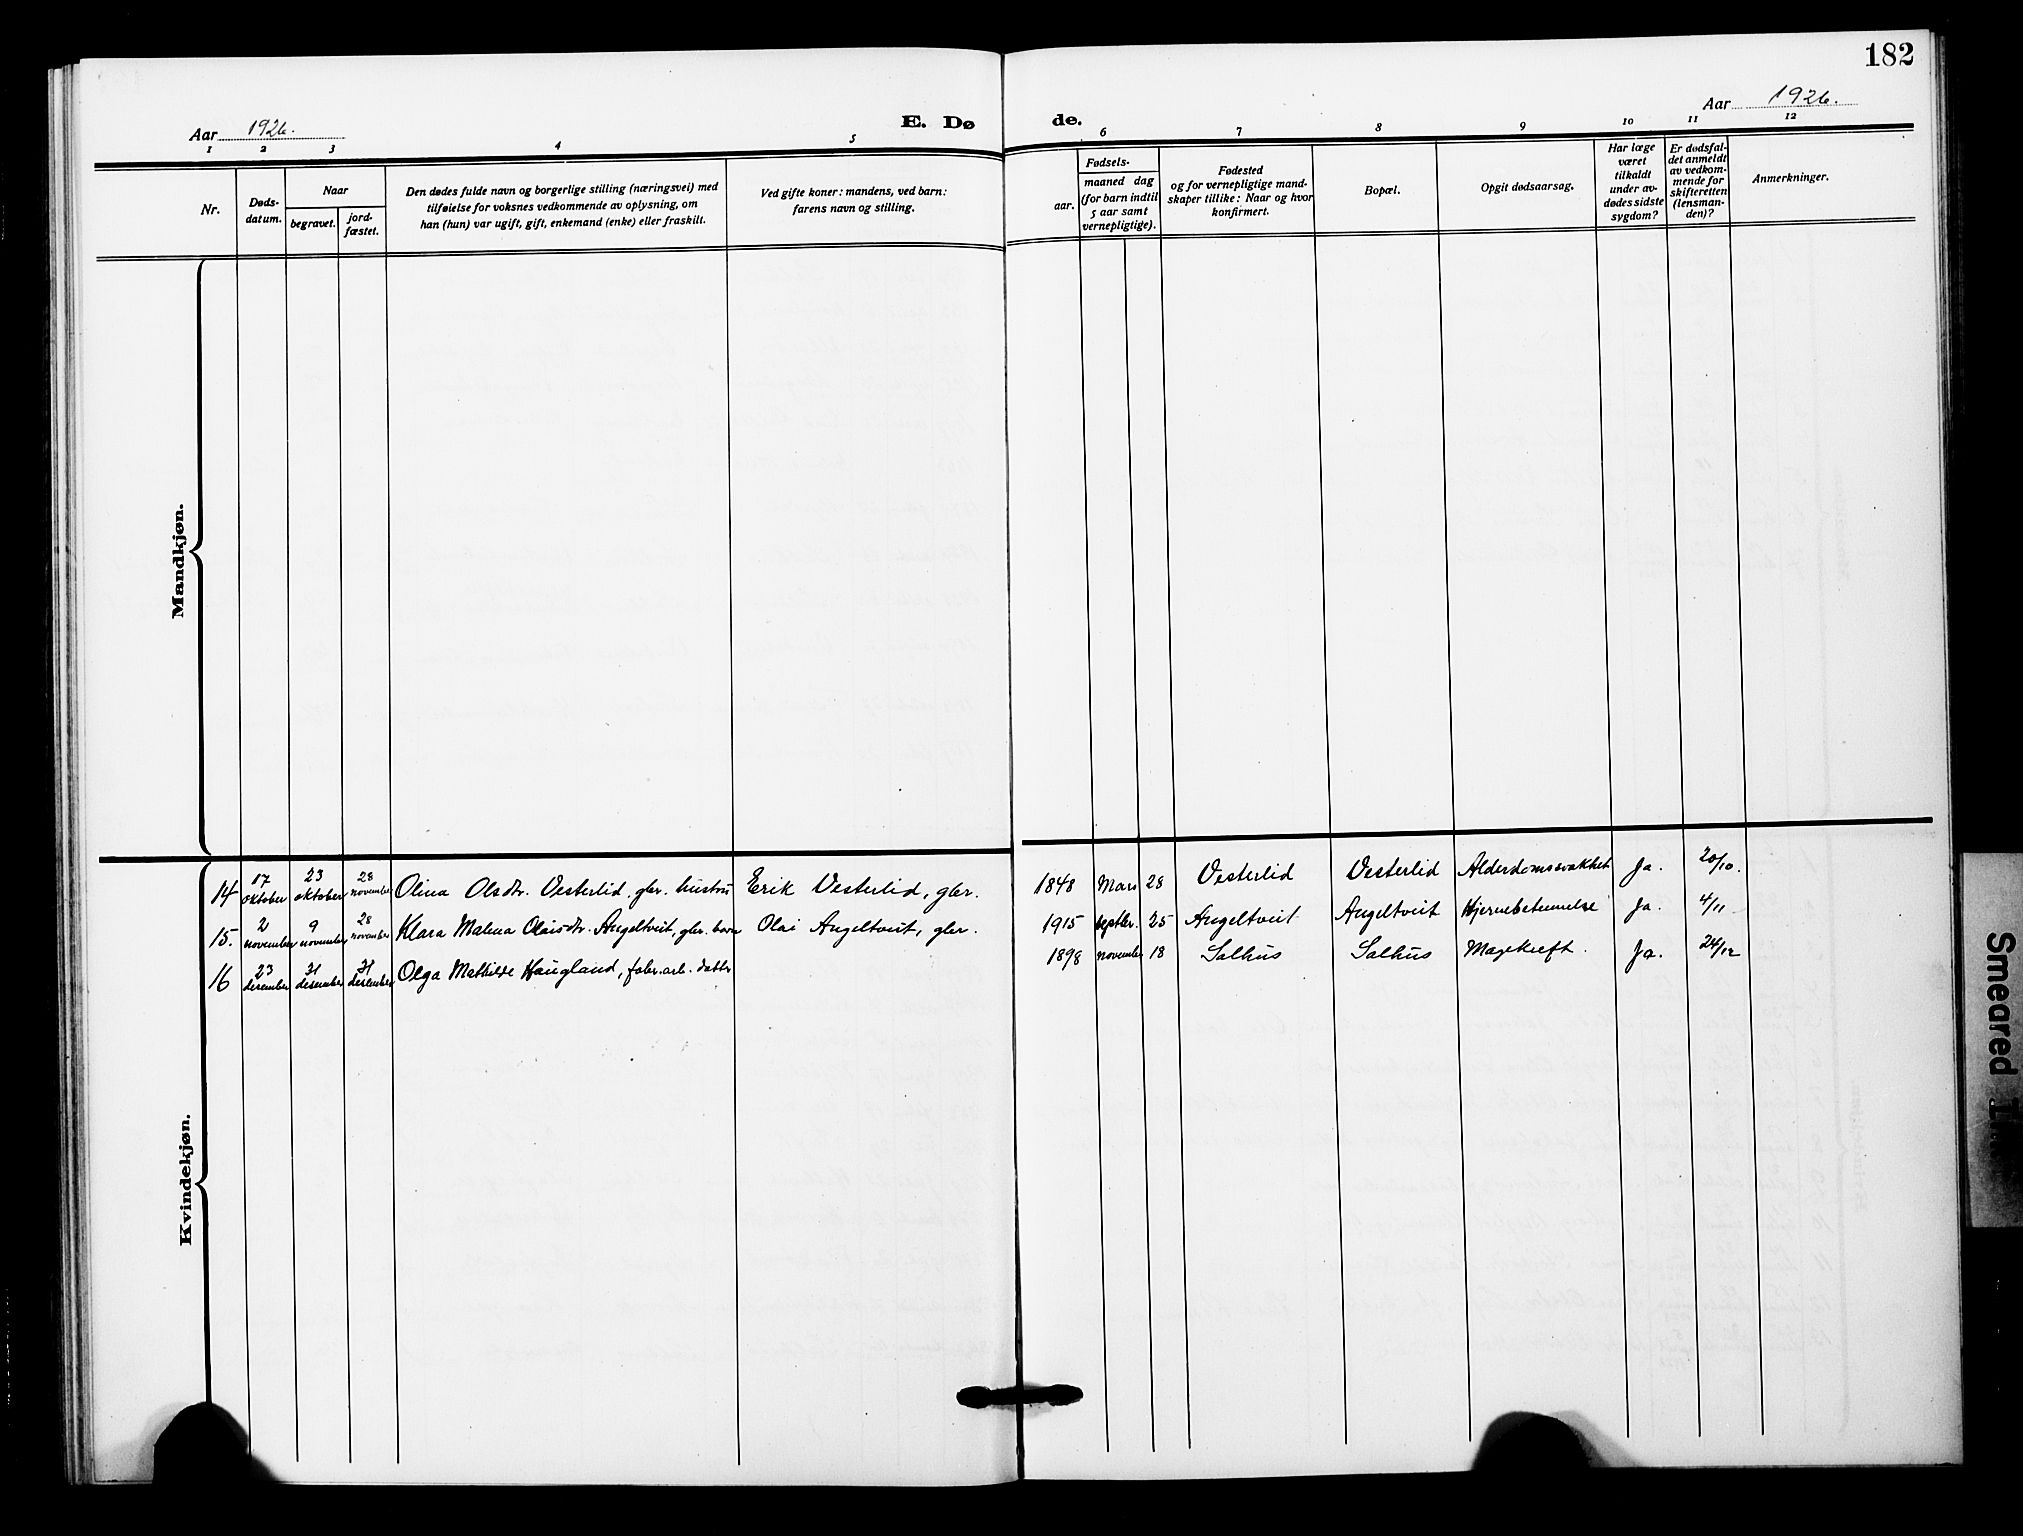 182
Aar 1926.
E. Døde.
Aar 1926.
1 2 3 4 5 6 7 8 9 10 11 12
Nr.
Døds-
datum.
Naar
begravet.
jord-
fæstet.
Den dødes fulde navn og borgerlige stilling (næringsvei) med
tilføielse for voksnes vedkommende av oplysning, om
han (hun) var ugift, gift, enkemand (enke) eller fraskilt.
Ved gifte koner: mandens, ved barn:
farens navn og stilling.
Fødsels-
aar.
maaned dag
(for barn indtil
5 aar samt
vernepligtige).
Fødested
og for vernepligtige mand-
skaper tillike: Naar og hvor
konfirmert.
Bopæl.
Opgit dødsaarsag.
Har læge
været
tilkaldt
under av-
dødes sidste
sygdom?
Er dødsfal-
det anmeldt
av vedkom-
mende for
skifteretten
(lensman-
den)?
Anmerkninger.
Mandkjøn.
Kvindekjøn.
14 17 oktober 23 oktober 28 november Olina Olsdtr. Vesterlid, gbr. hustru Erik Vesterlid, gbr. 1848 Mars 28 Vesterlid Vesterlid Alderdomssvakhet Ja. 20/10.
15. 2 november 9 november 28 november Klara Malena Olaisdtr. Angeltveit, gbr. barn Olai Angeltveit, gbr. 1915 septbr. 25 Angeltveit Angeltveit Hjernebetennelse Ja. 4/11
16 23 desember 31 desember 31 desember Olga Mathilde Haugland, fabr.arb. datter 1898 november 18 Salhus Salhus Magekreft. Ja. 24/12
Smeared